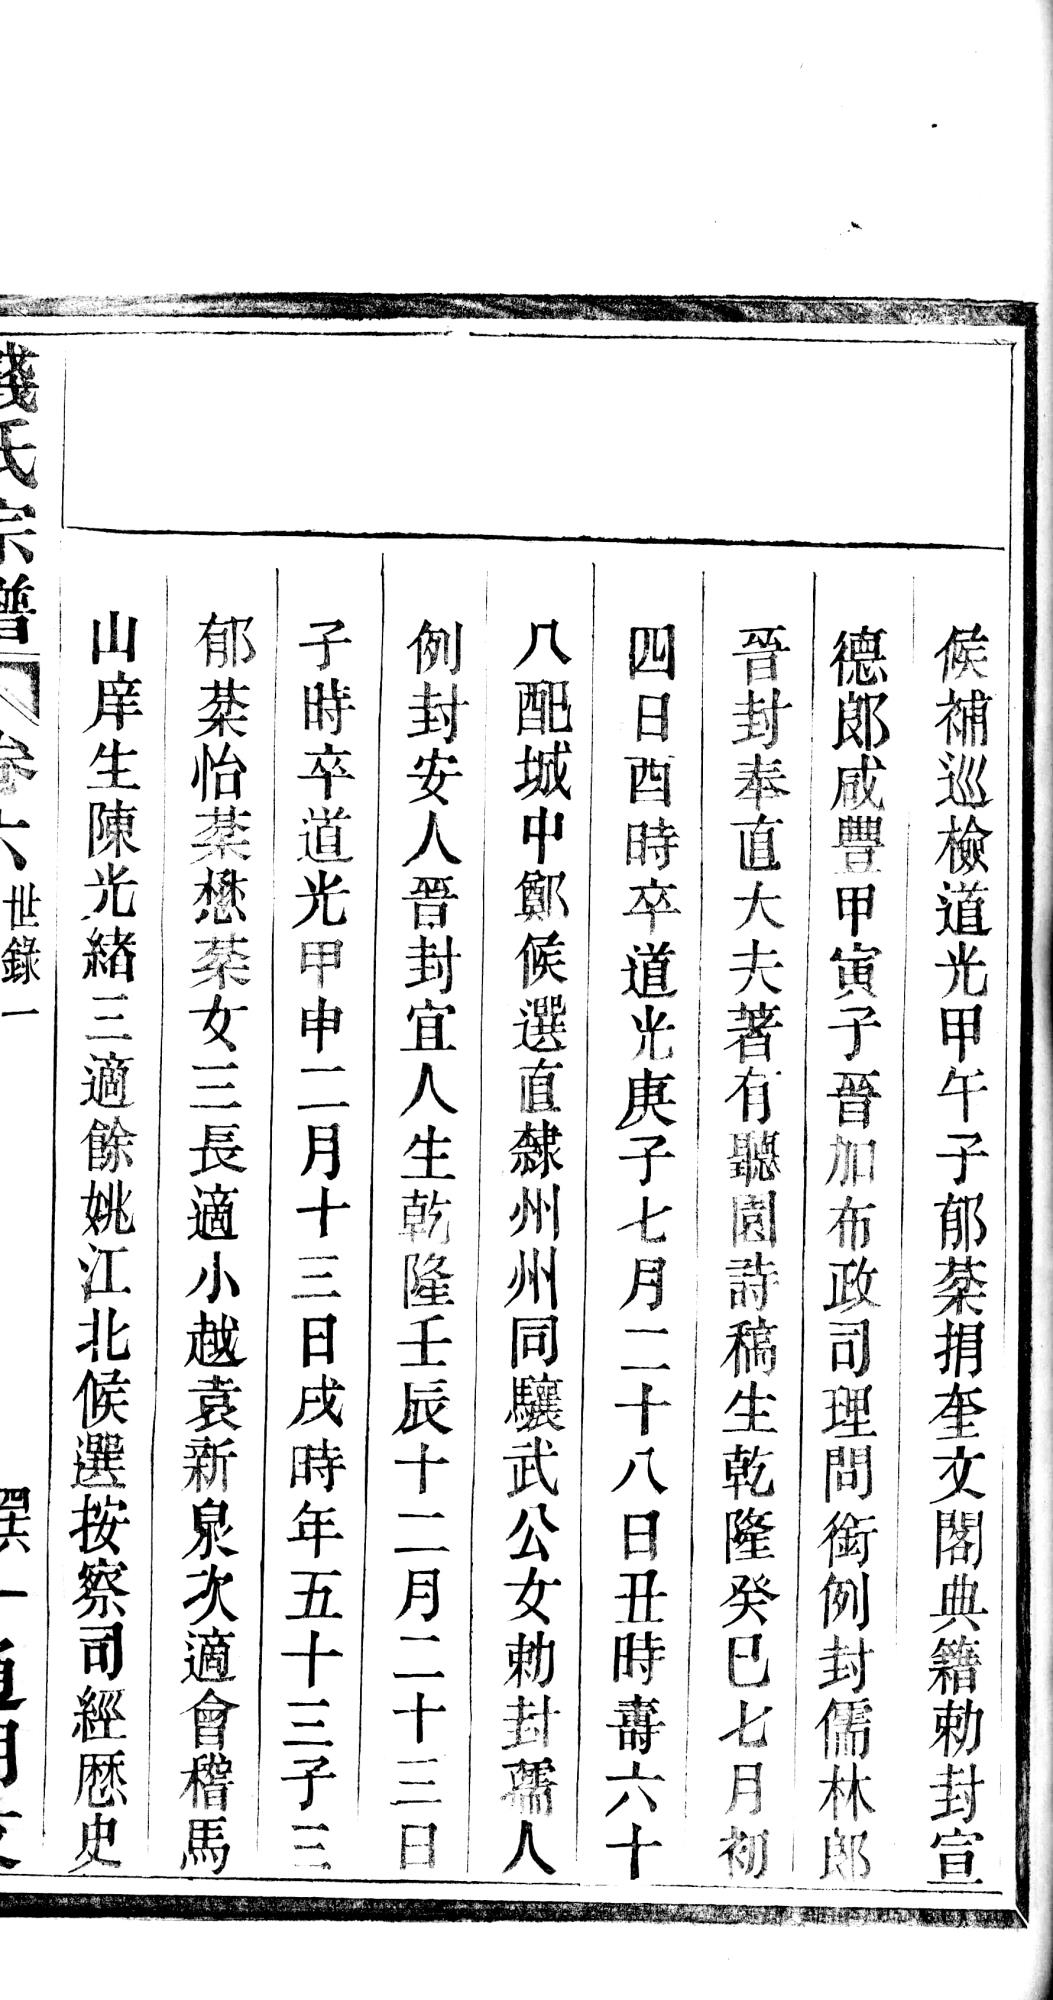 候補巡檢道光甲午子郁棻捐奎文閣典籍勅封宣
德郎咸豐甲寅子晉加布政司理問銜例封儒林郎
晉封奉直大夫著有聽園詩稿生乾隆癸巳七月初
四日酉時卒道光庚子七月二十八日丑時壽六十
八配城中鄭候選直隸州州同驤武公女勅封孺人
例封安人晉封宜人生乾隆壬辰十二月二十三日
子時卒道光甲申二月十三日戌時年五十三子三
郁棻怡棻懋棻女三長適小越袁新泉次適會稽馬
山庠生陳光緒三適餘姚江北候選按察司經歷史
錢氏宗譜 卷六 世錄一